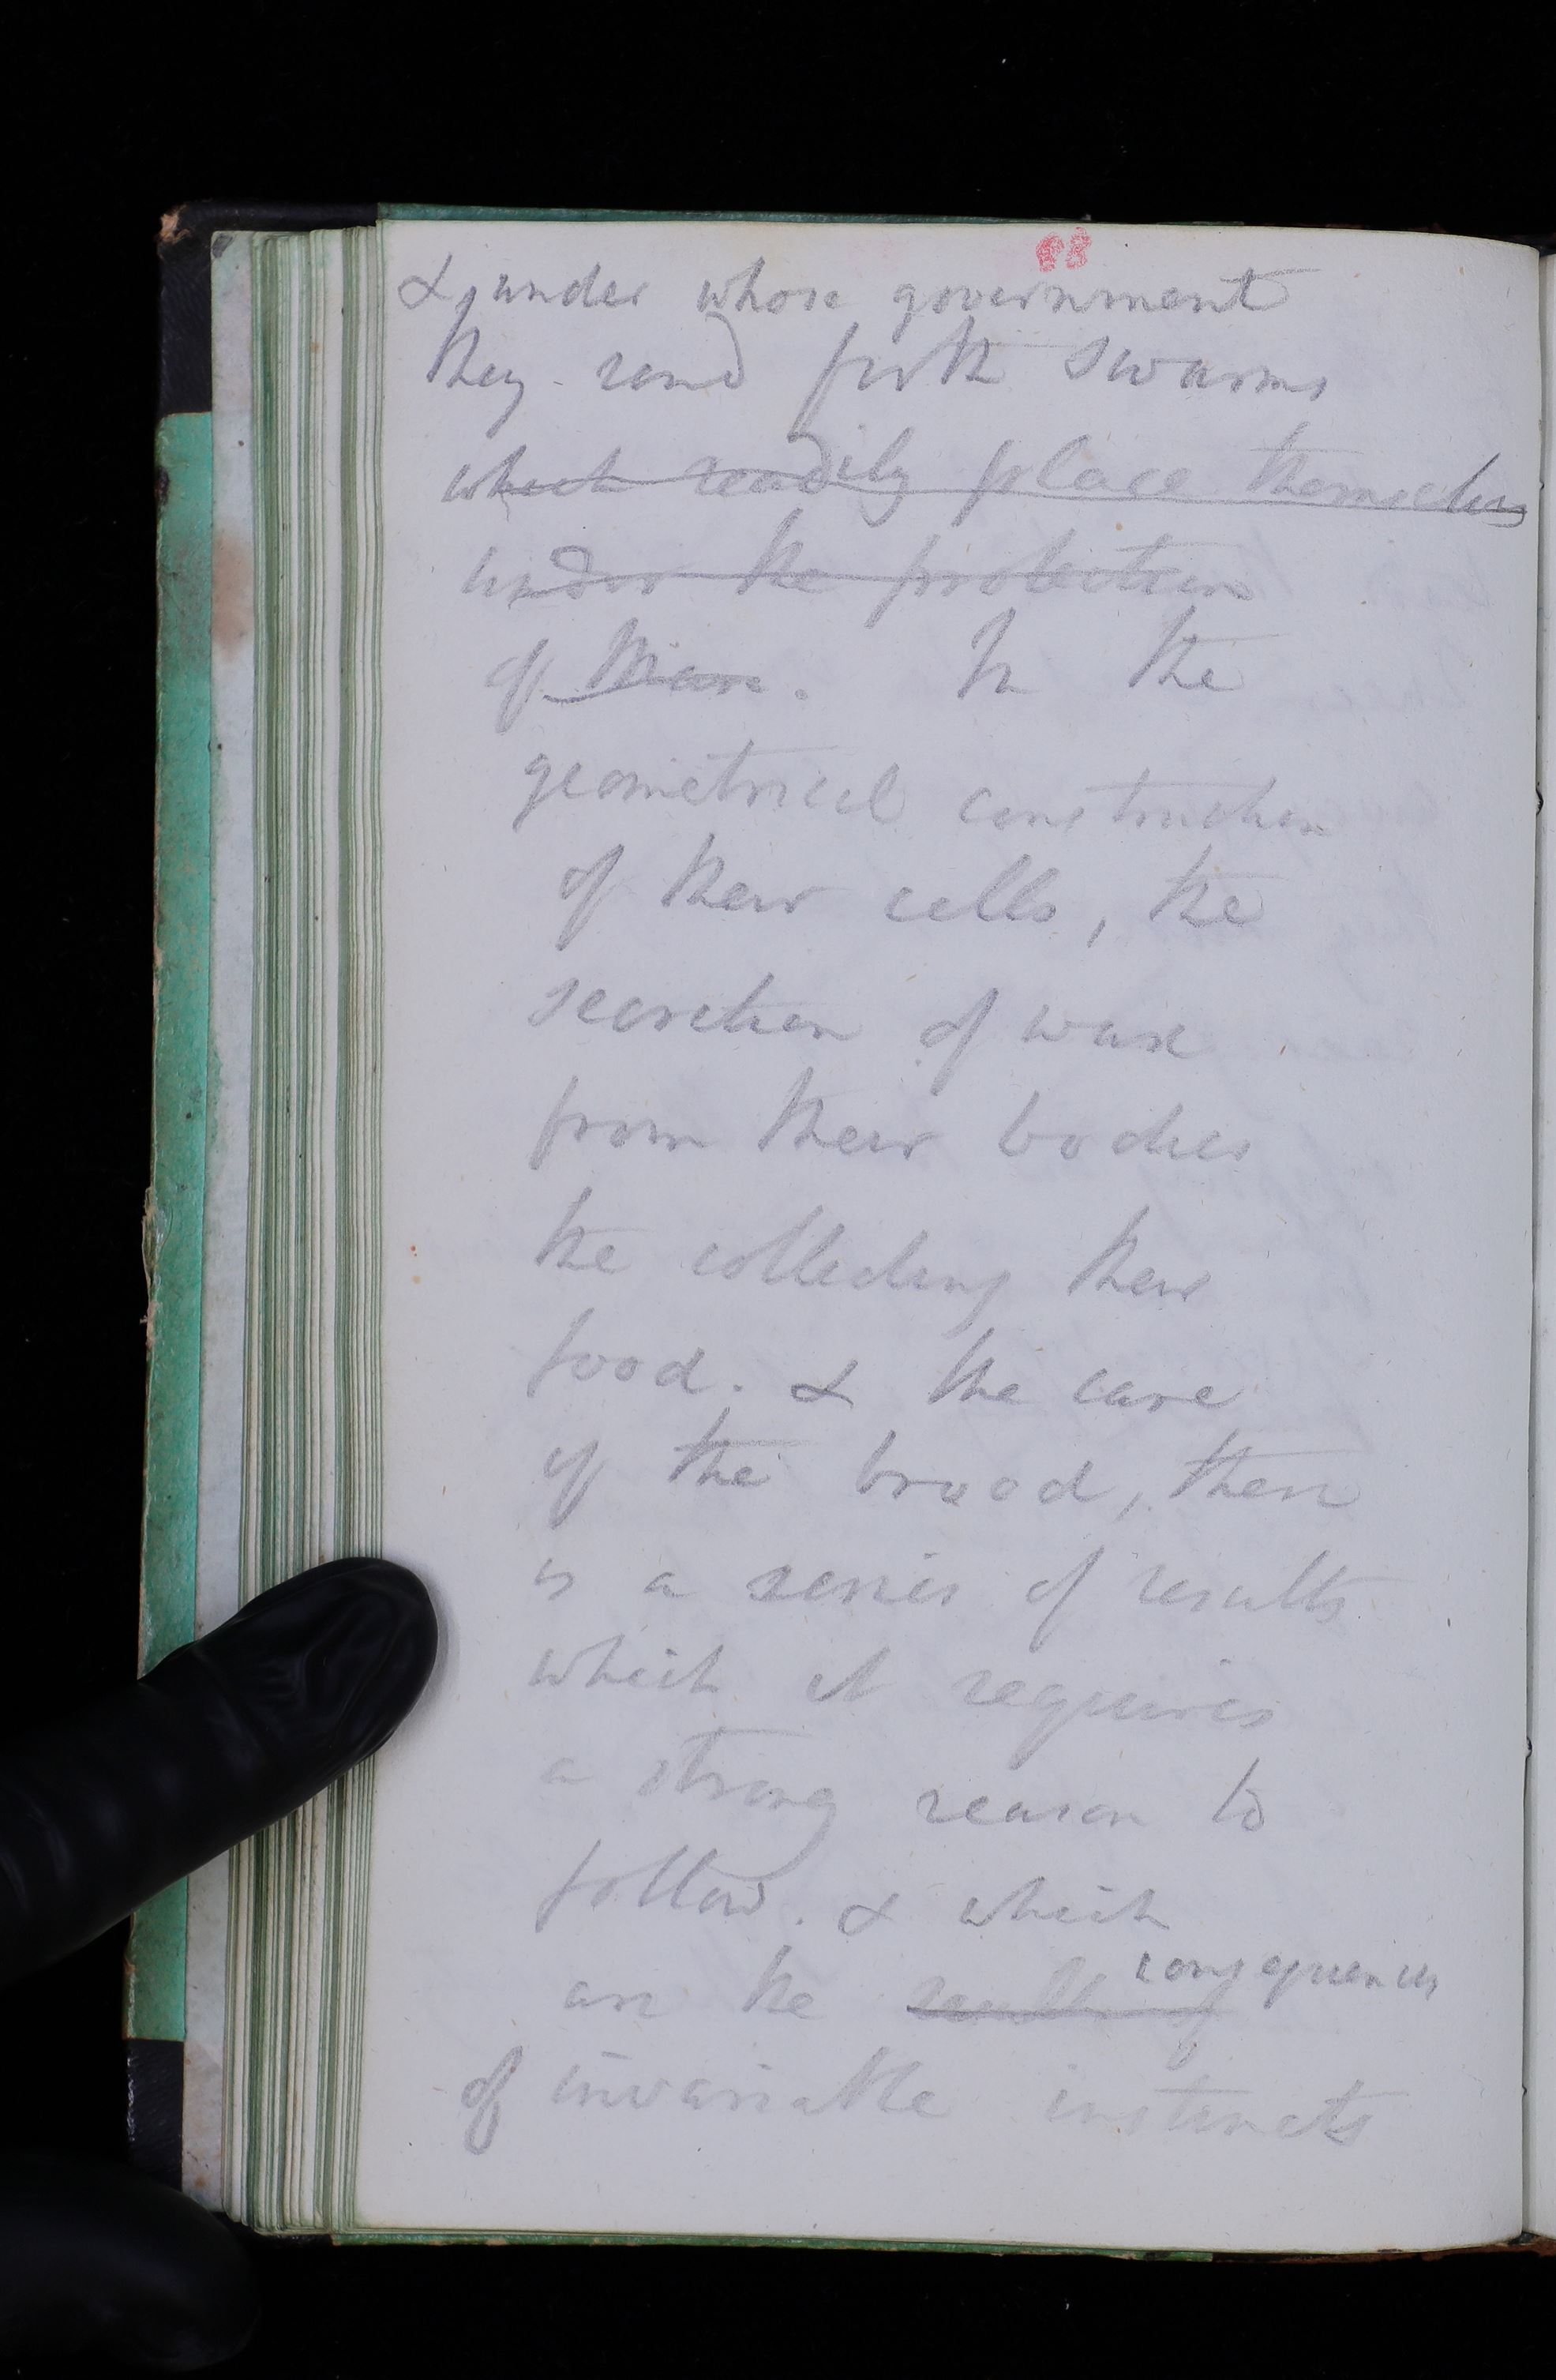 88
& under whose government
they send forth swarms
which readily place themselves
under the protection
of Man. In the
geometrical construction
of their cells, the
secretion of wax
from their bodies
the collecting their
food. & the care
of the brood, there
is a series of results
which it requires
a strong reason to
follow. & which
consequences
are the results of
of invariable instincts